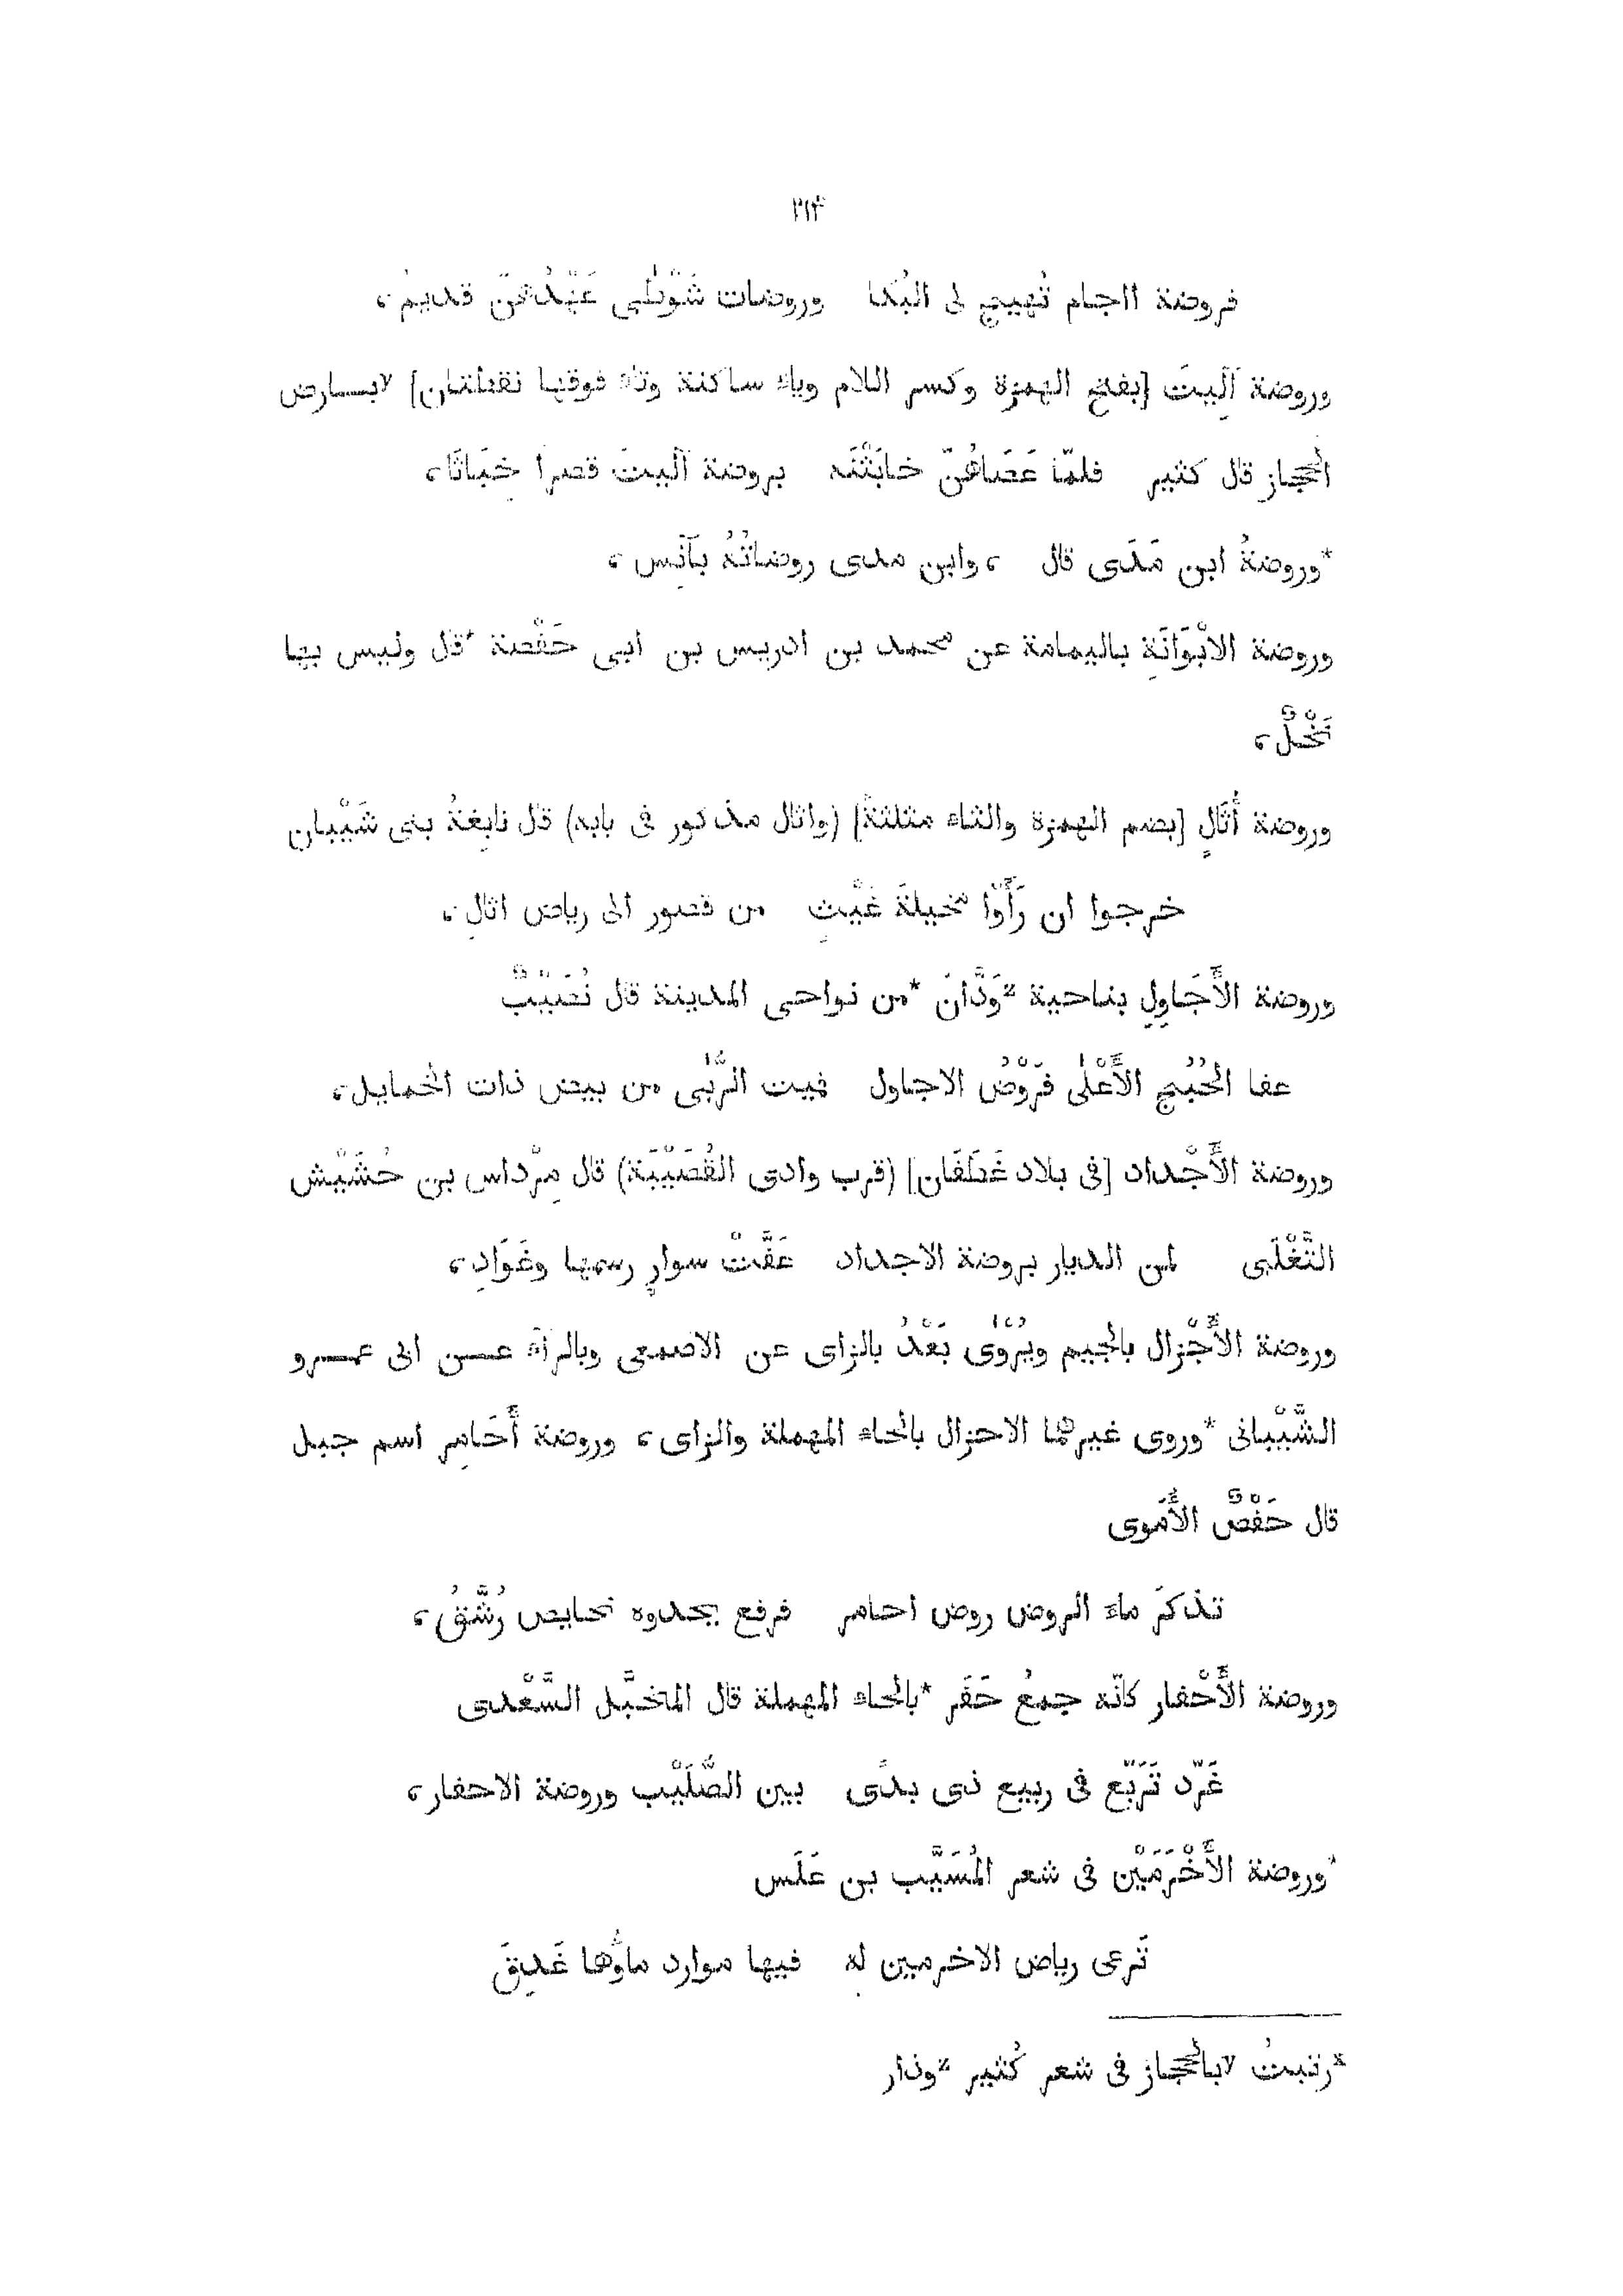 ٢١٣
فروضة ااجام تُهيج لى البُكا وروضات شَوْطَى عَهْدُهنّ قديمُ،
وروضة آلِيتَ [بفتح الهمزة وكسر اللام وياء ساكنة وتاء فوقها نقطتان] ٧بارض
الحجاز قال كثير فلمّا عَصَاهُنّ خابَثْنَه بروضة آلِيتَ قصرا خِبَاثَا،
*وروضةُ ابن مَدَى قال ، وابن مدى روضاتُهُ بآنِس،
وروضة الابْوَانَةِ باليمامة عن محمد بن ادريس بن ابى حَفْصة *قال وليس بها
نَخْلٌ،
وروضة أُثَالٍ [بضم الهمزة والثاء مثلثة] (واثال مذكور فى بابه) قال نابِغةُ بنى شَيْبان
خرجوا ان رَأَوْا مخيلةَ غَيْثٍ من قصور الى رياض اثالِ،
وروضة الأَجَاوِلِ بناحية *وَدَّانَ *من نواحى المدينة قال نُصَيْبٌ
عفا الحُبُجُ الأَعْلى فَرَوْضُ الاجاول فميت الرُّبَى من بيض ذات الخمايل،
وروضة الأَجْداد [فى بلاد غَطَفَان] (قرب وادى القُصَيْبَة) قال مِرْداس بن حُشَيْش
التَّغْلَبى لمن الديار بروضة الاجداد عَفَّتْ سوارٍ رسمها وغَوَادِ،
وروضة الأَجْزال بالجيم ويُرْوَى بَعْدُ بالزاى عن الاصمعى وبالراء عن ابى عمرو
الشَّيْبانى *وروى غيرهما الاحزال بالحاء المهملة والزاى، وروضة أَحَامِر اسم جبل
قال حَفْصٌ الأُمَوى
تذكرّ ماءَ الروض روض احامر فرفع يحدوه نحايص رُشَّقُ،
وروضة الأَحْفار كانّه جمعُ حَفَر *بالحاء المهملة قال المخبَّل السَّعْدى
غَرّد تَرَبّع فى ربيع ذى بدًى بين الصُّلَيْب وروضة الاحفار،
*وروضة الأَخْرَمَيْن فى شعر المُسَيَّب بن عَلَس
تَرعى رياض الاخرمين له فيها موارد ماوُها غَدِقَ
*رتبتُ ٧بالحجاز فى شعر كُثير *وذار